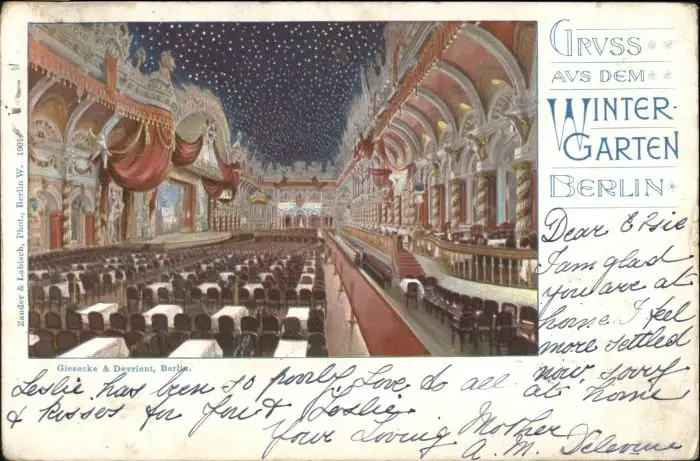 GRVSS
AVS DEM
WINTER-
GARTEN
BERLIN
Zander & Labisch, Phot., Berlin W. 1901.
Giesecke & Devrient, Berlin.
Dear Elsie
I am glad
you are at
home I feel
more settled
now, sorry
Leslie has been so poorly, Love to all at home
& kisses for you & Leslie
Your Loving Mother
A. M. Delevine